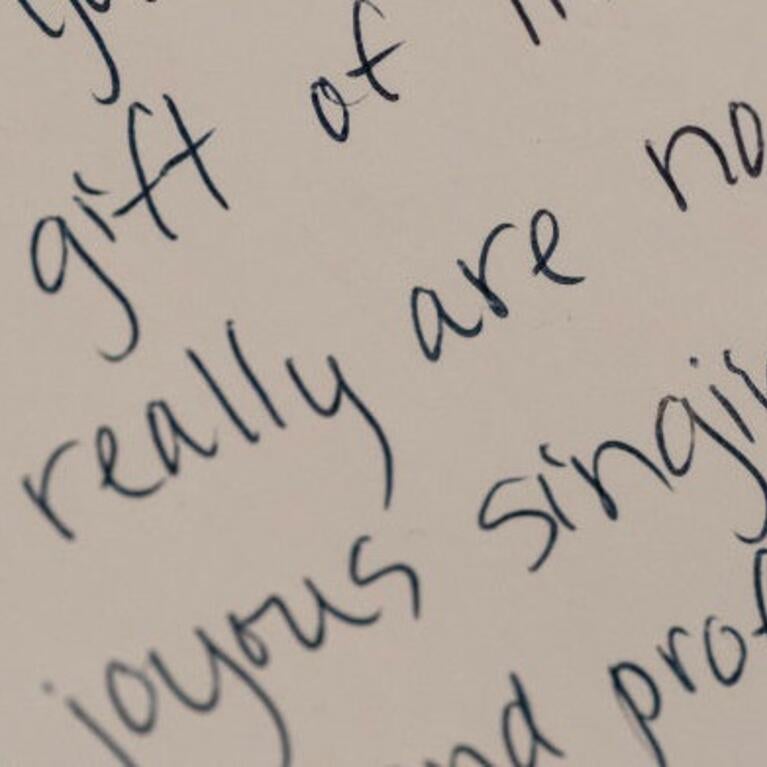 gift of
really are no
joyous singin
nd prof